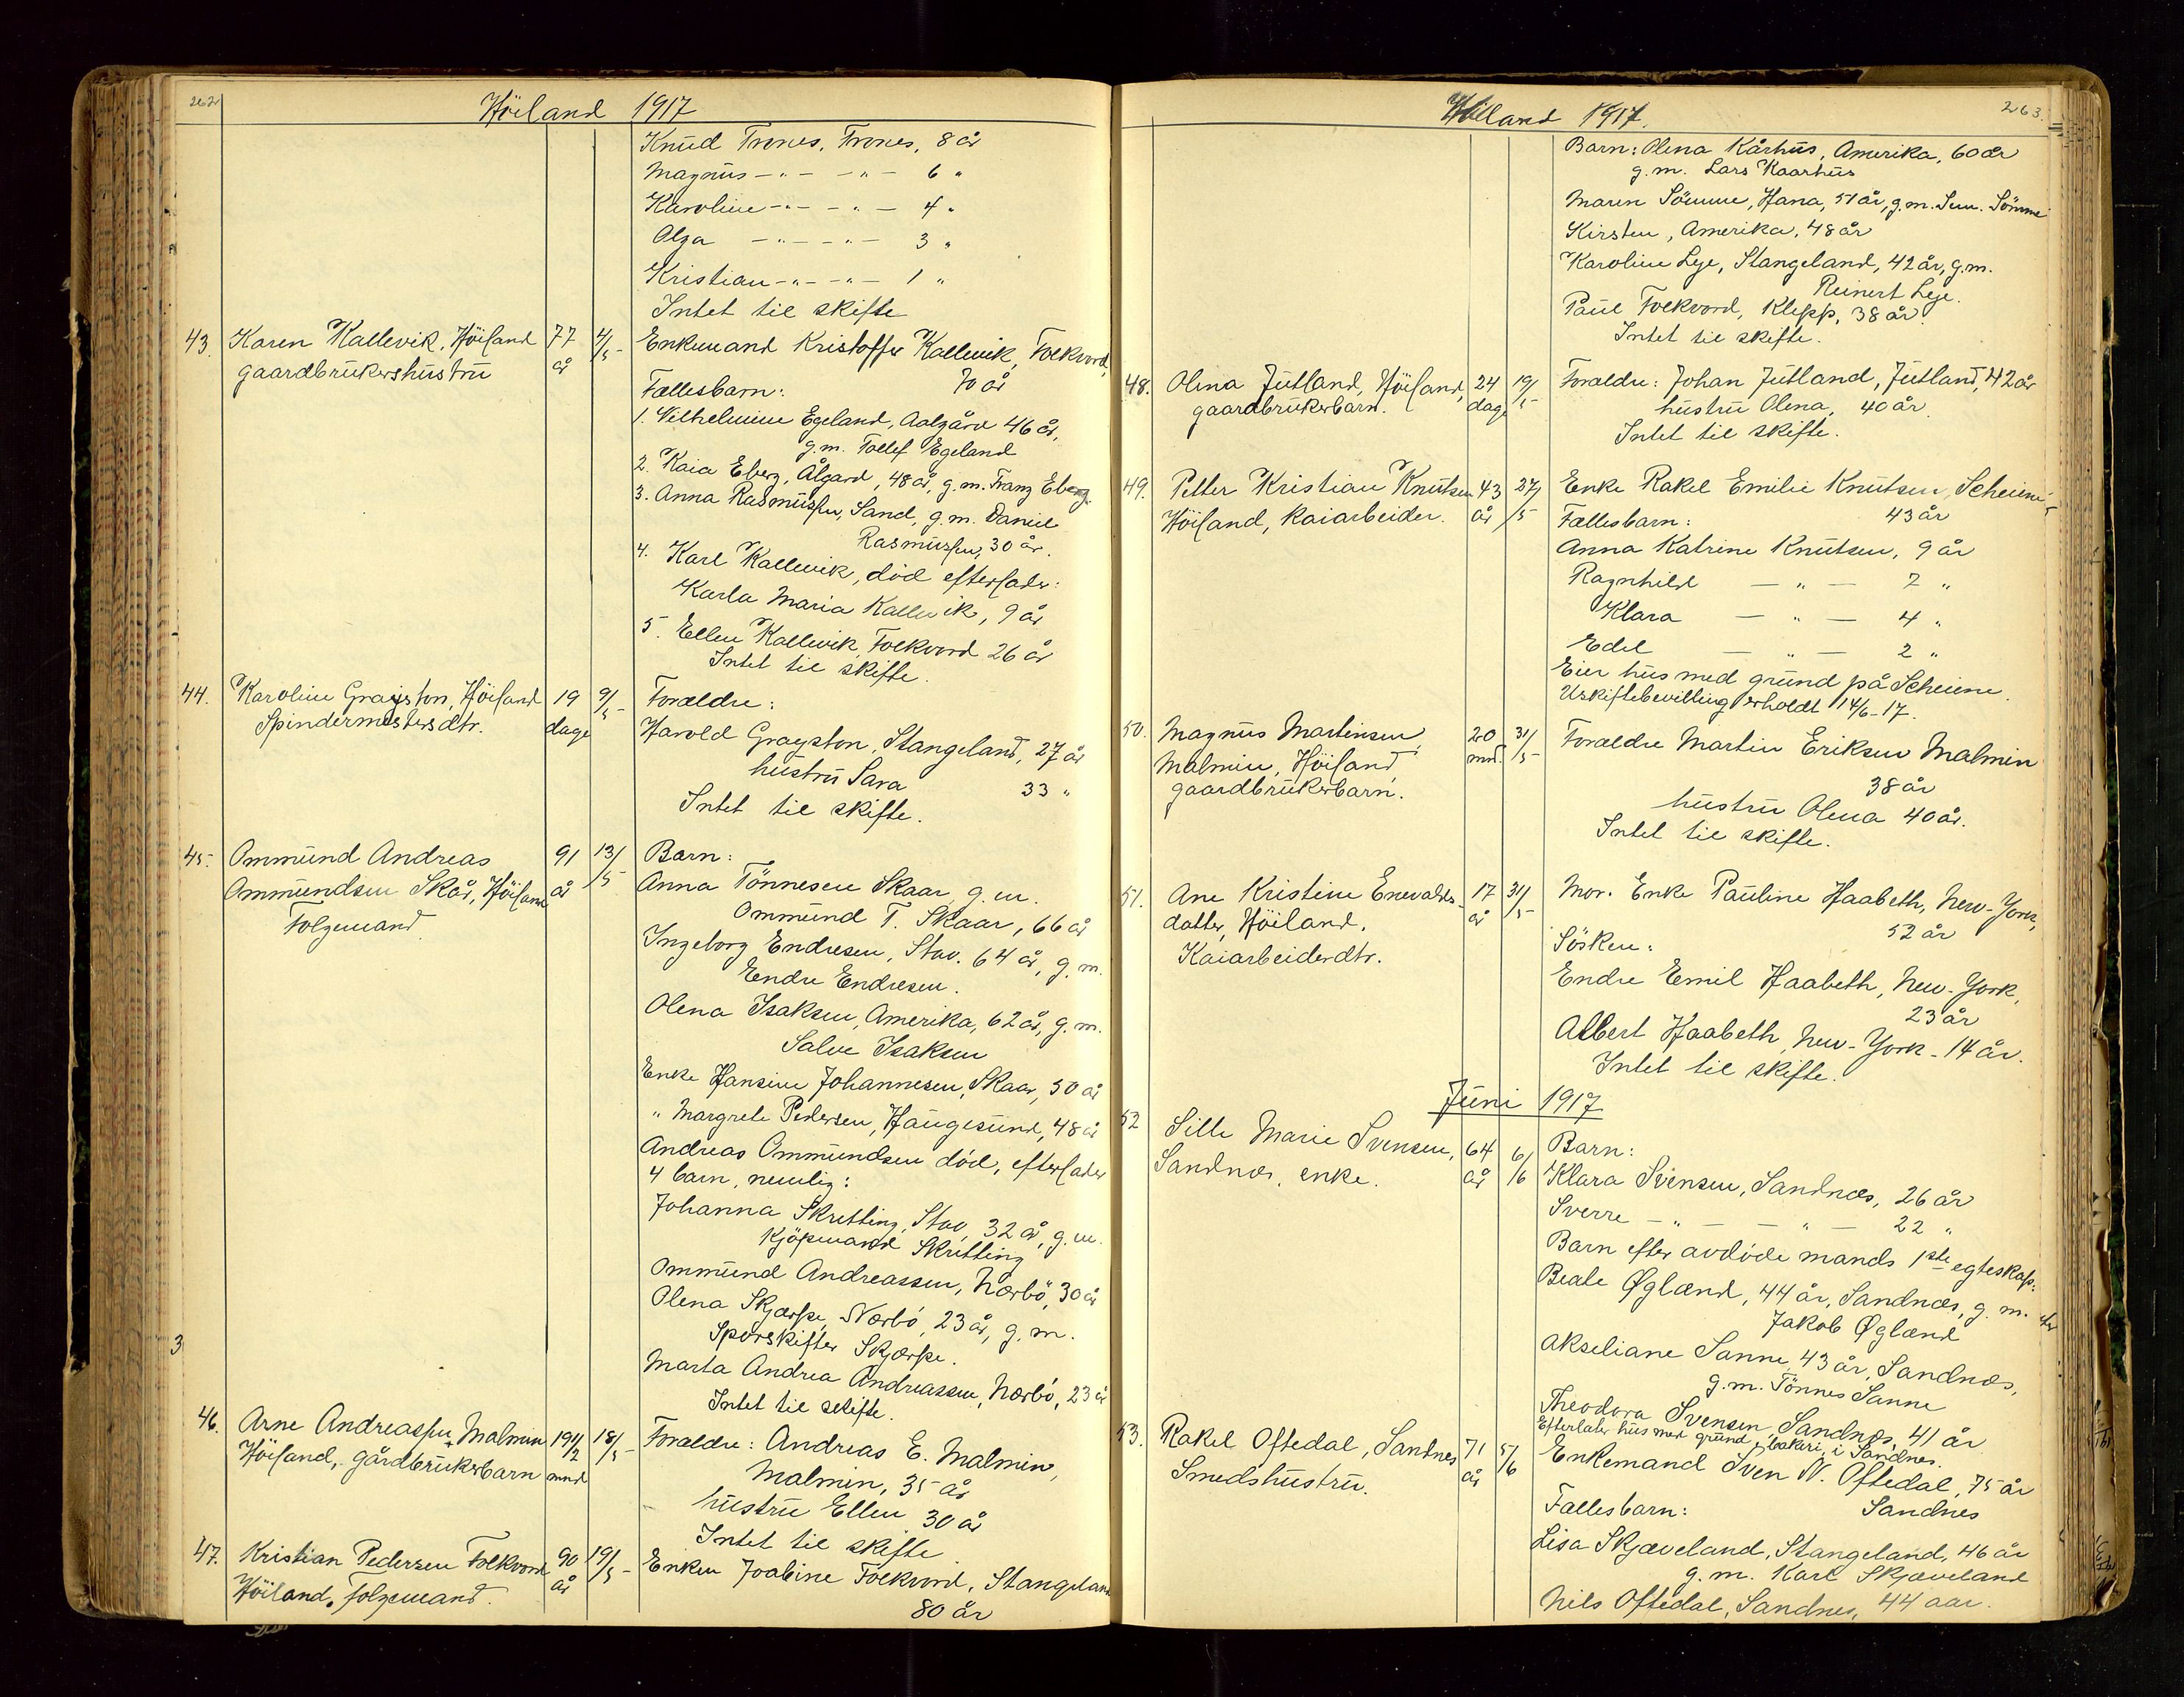 262
Höiland 1917
Knud Trones, Trones, 8 år
Magnus -"- -"- 6 "
Karoline -"- -"- 4 "
Olga -"- -"- 3 "
Kristian -"- -"- 1 "
Intet til skifte
43. Karen Kallevik, Höiland 77 4/5 Enkemand Kristoffer Kallevik, Folkvord,
gaardbrukershustru år 70 år
Fællesbarn:
1. Vilhelmine Egeland, Aalgård 46 år,
g.m. Tollef Egeland
2. Kaia Eberg, Ålgard, 48 år, g.m. Franz Eberg.
3. Anna Rasmussen, Sand, g.m. Daniel
Rasmussen, 30 år.
4. Karl Kallevik, död efterlader:
Karla Maria Kallevik, 9 år
5. Ellen Kallevik, Folkvord 26 år
Intet til skifte.
44. Karoline Grayston, Höiland 19 9/5 Forældre:
Spindermestersdtr. dage Harold Grayston, Stangeland, 27 år
hustru Sara 33 "
Intet til skifte.
45. Ommund Andreas 91 13/5 Barn:
Ommundsen Skår, Höiland år Anna Tönnesen Skaar g.m.
Folgemand Ommund T. Skaar, 66 år
Ingeborg Endresen, Stav. 64 år, g.m.
Endre Endresen.
Olena Isaksen, Amerika, 62 år, g.m.
Salve Isaksen
Enke Hansine Johannesen, Skaar, 50 år
" Margrete Pedersen, Haugesund, 48 år
Andreas Ommundsen död, efterlader
4 barn, nemlig:
Johanna Skretting, Stav, 32 år, g.m.
Kjöpmand Skretting
Ommund Andreassen, Nærbö, 30 år
Olena Skjærpe, Nærbö, 23 år, g.m.
Sporskifter Skjærpe.
Marta Andrea Andreassen, Nærbö, 23 år
Intet til skifte.
46. Arne Andreassen Malmin 19 1/2 18/5 Forældre: Andreas E. Malmin,
Höiland, gårdbrukerbarn mnd Malmin, 35 år
hustru Ellen 30 år
Intet til skifte
47. Kristian Pedersen Folkvord 90 19/5 Enken Joabine Folkvord, Stangeland
Höiland, Folgemand. år 80 år
Höiland 1917.
263.
Barn: Olena Kårhus, Amerika, 60 år
g.m. Lars Kaarhus
Maren Sömme, Hana, 51 år, g.m. Sömme
Kirsten, Amerika, 48 år
Karoline Lye, Stangeland, 42 år, g.m.
Reinert Lye.
Paul Folkvord, Klepp, 38 år
Intet til skifte.
48. Olena Jutland, Höiland, 24 19/5 Forældre: Johan Jutland, Jutland, 42 år
gaardbrukerbarn. dage hustru Olena, 40 år
Intet til skifte.
49. Petter Kristian Knutsen 43 27/5 Enke Rakel Emilie Knutsen, Scheiene,
Höiland, Kaiarbeider. år 43 år
Fællesbarn:
Anna Katrine Knutsen, 9 år
Ragnhild - " - 7 "
Klara - " - 4 "
Edel - " - 2 "
Eier hus med grund på Scheiene.
Uskiftebevilling erholdt 14/6-17.
50. Magnus Martinsen 20 31/5 Forældre Martin Eriksen Malmin
Malmin, Höiland, mnd. 38 år
gaardbrukerbarn. hustru Olena 40 år.
Intet til skifte.
51. Ane Kristine Enevalds- 17 31/5 Mor. Enke Pauline Haabeth, New-York,
datter, Höiland. år 52 år
Kaiarbeiderdtr. Sösken:
Endre Emil Haabeth, New-York,
23 år
Albert Haabeth, New-York - 14 år.
Intet til skifte.
Juni 1917
52 Sille Marie Svensen, 64 6/6 Barn:
Sandnæs, enke. år Klara Svensen, Sandnæs, 26 år
Sverre - " - - " - 22 "
Barn efter avdöde mands 1ste egteskap:
Beate Øglænd, 44 år, Sandnæs, g.m.
Jakob Øglænd
Akseliane Sanne, 43 år, Sandnæs,
g.m. Tönnes Sanne
Theodora Svensen, Sandnæs, 41 år
Efterlater hus med grund, bakeri, i Sandnes.
53. Rakel Oftedal, Sandnes 71 5/6 Enkemand Sven N. Oftedal, 75 år
Smedshustru. år Sandnes
Fællesbarn:
Lisa Skjæveland, Stangeland, 46 år
g.m. Karl Skjæveland
Nils Oftedal, Sandnes, 44 aar.